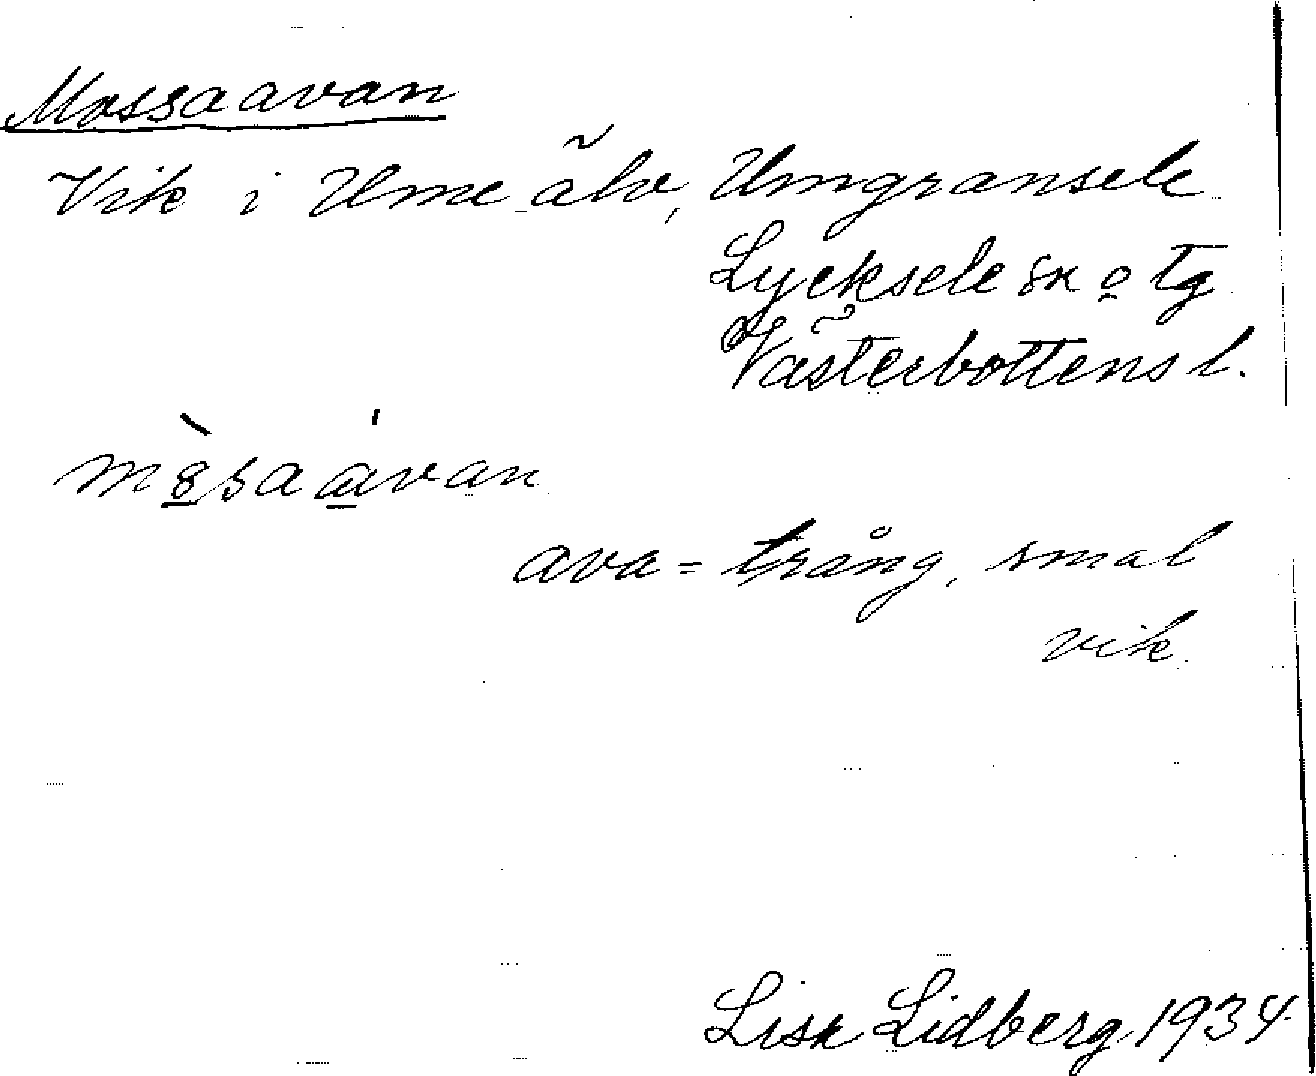 Mossaavan
Vik i Ume älv, Umgransele
Lycksele sn o tg
Västerbottens l.
mòsaávan
ava = trång, smal
vik.
Lisa Lidberg 1934